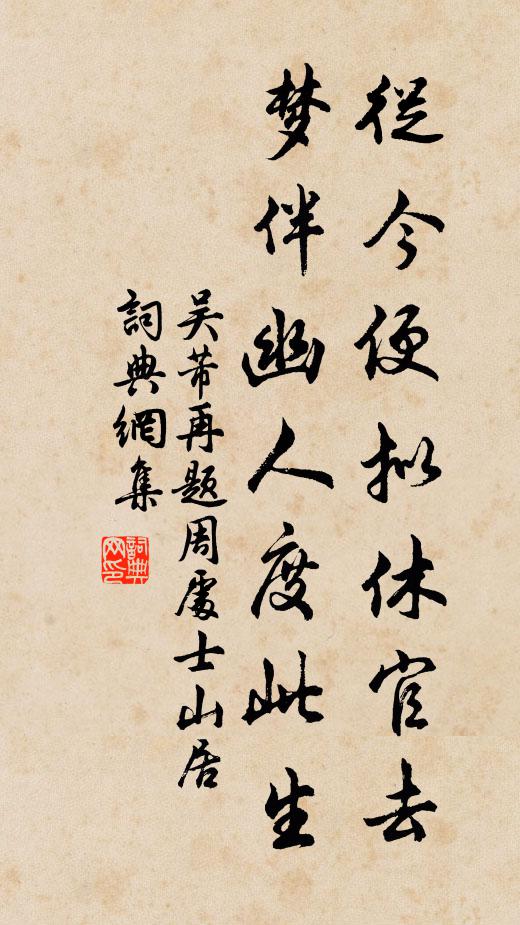 從今便拟休官去
梦伴幽人度此生
吴芾再题周處士山居
詞典網集
詞典网印